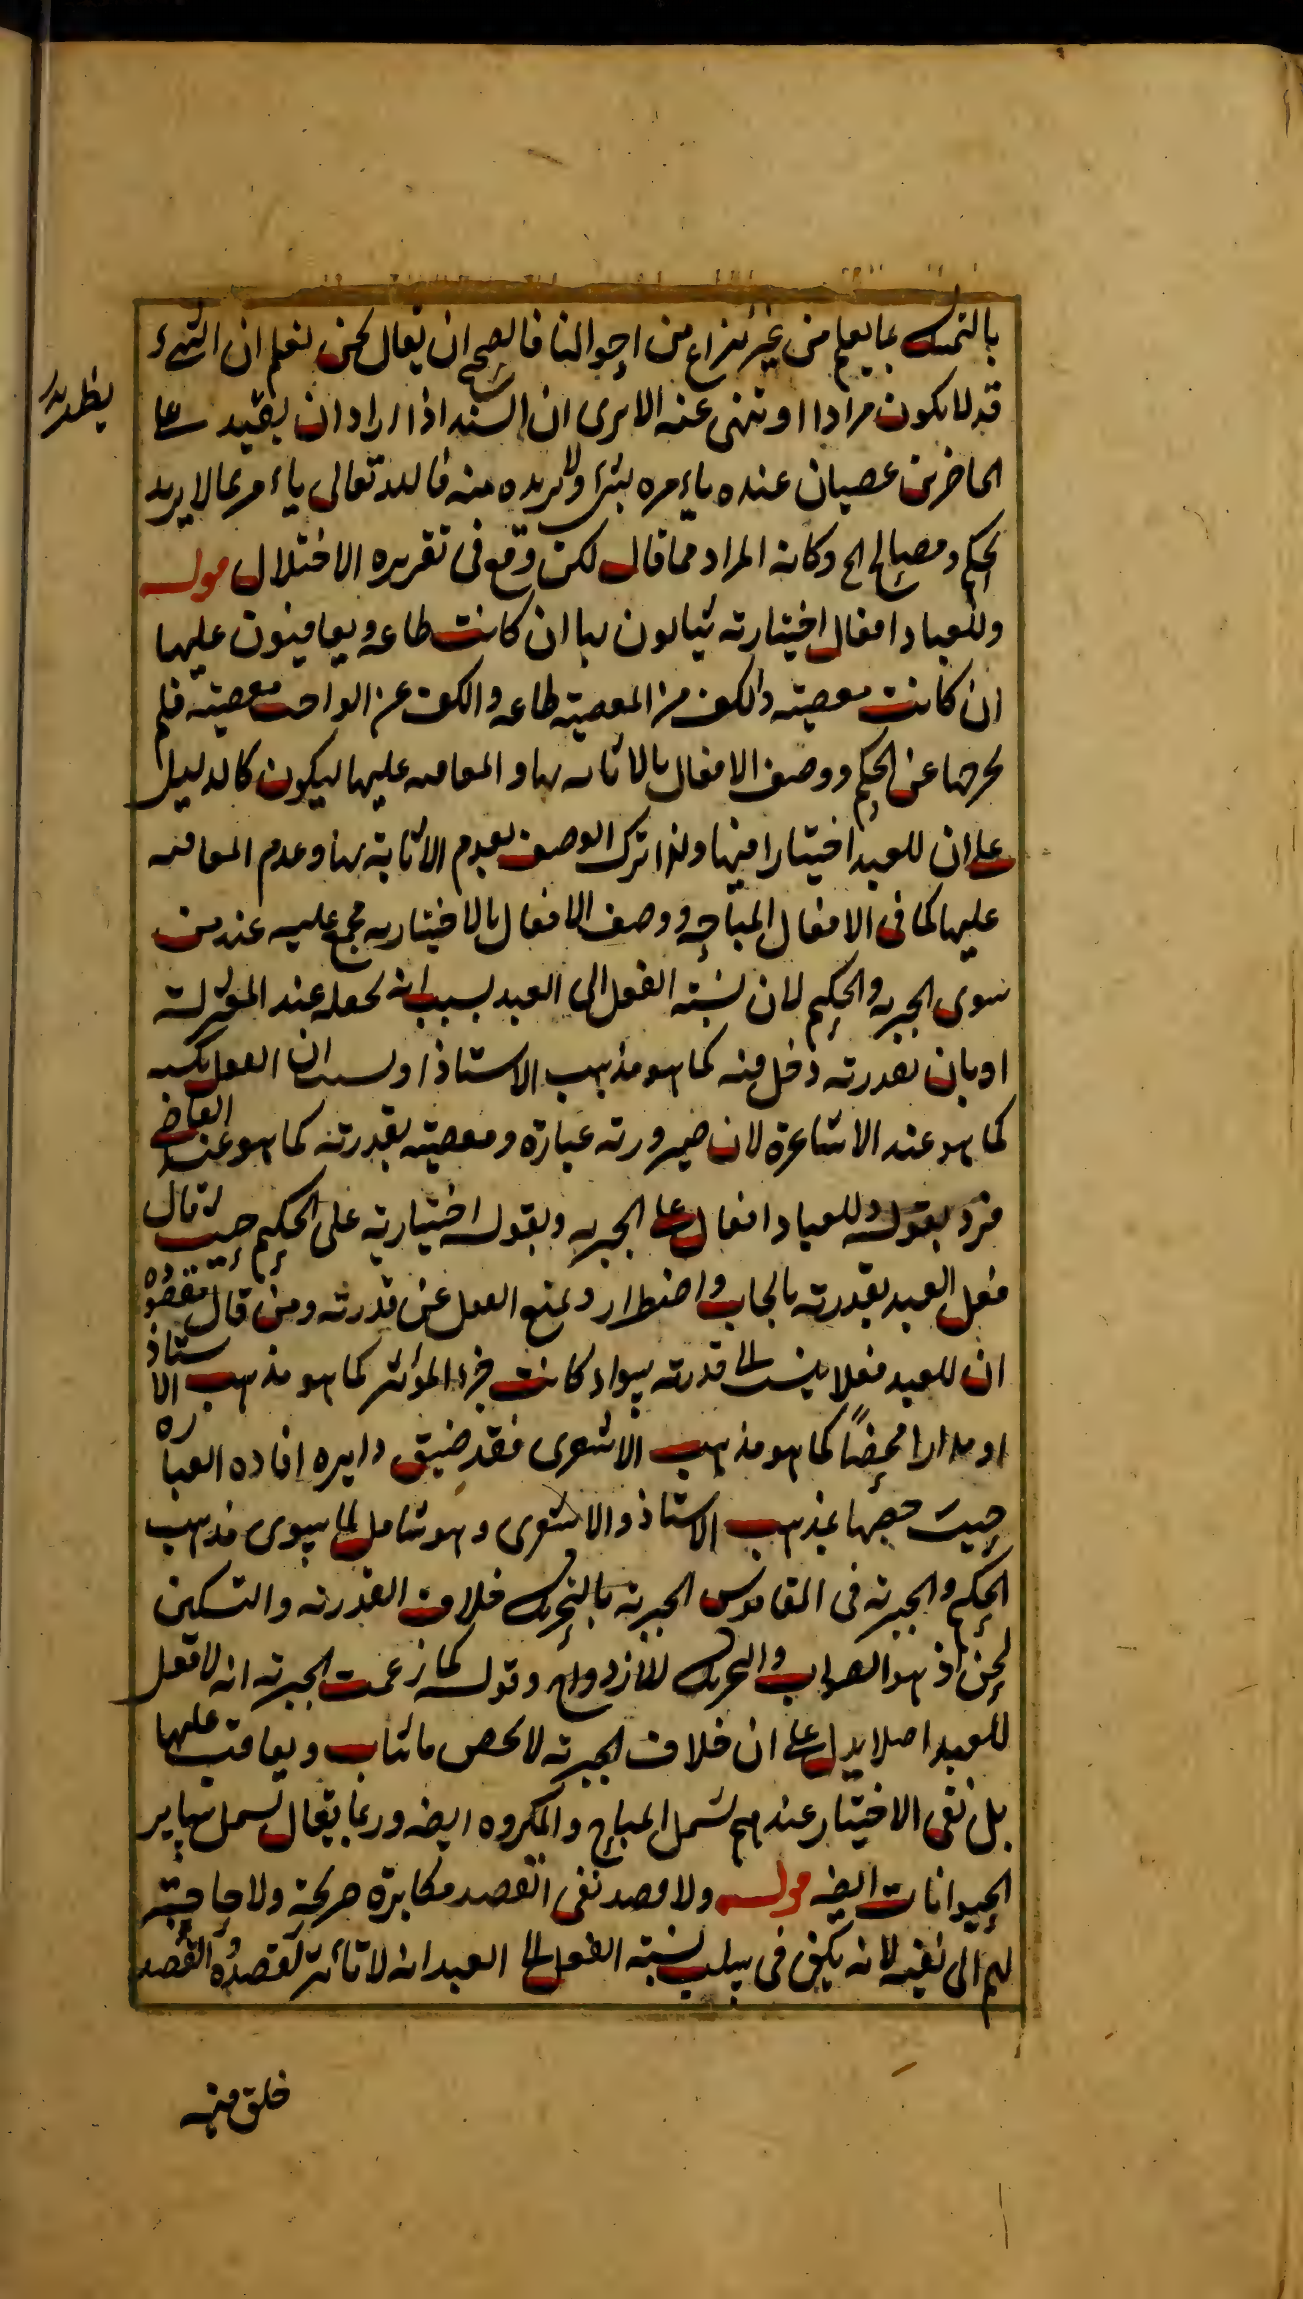 بالتمسك بما يعلم من غير نزاع من احوالنا فالصحيح ان يقال نحن نعلم ان الشئ
قد لا يكون مرادا او ننهى عنه الا يرى ان السيد اذا اراد ان على
الحاضرين عصيان عنده ياءمره بشئ ولا يريده منه فالله تعالى ياءمر بما لا يريد
لحكم ومصالح الخ وكانه المراد مما قال لكن وقع فى تقريره الاختلال قوله
وللعباد افعال اختيارية يثابون بها ان كانت طاعه ويعاقبون عليها
ان كانت معصيته والكف من المعصية طاعه والكف عن الواجب معصيته فلم
يخرجها عن الحكم ووصف الافعال بالاثابه بها والمعاقبه عليها ليكون كالدليل
على ان للعبد اختيارا فيها ولذا ترك الوصف بعدم الاثابة بها وعدم المعاقبه
عليها كما فى الافعال المباحه ووصف الافعال بالاختياريه مجمع عليه عند من
سوى الجبريه والحكيم لان نسبته الفعل الى العبد بسبب انه يخلقه عند المعتزلة
او بان لقدرته دخل فيه كما هو مذهب الاستاذ او بسبب ان الفعل بكسبه
كما هو عند الاشاعرة لان صيرورته عبادة ومعصيته بقدرته كما هو عند القاضى
فرد بقوله وللعباد افعال على الجبريه وبقوله اختيارية على الحكيم حيث قال
فعل العبد بقدرته بالايجاب واضطرار ويمنع الفعل عن قدرته ومن قال مقصوده
ان للعبد فعلا ينسب الى قدرته سواء كانت جزء المؤثر كما هو مذهب الاستاذ
او مدارا محضاً كما هو مذهب الاشعرى فقد ضيق دايره افاده العباره
حيث خصها بمذهب الاستاذ والاشعرى وهو شامل لما سوى مذهب
الحكيم والجبرية فى القاموس الجبرية بالتحريك خلاف القدرية والتسكين
لحن اذ هو الصواب والتحريك للازدواج وقوله كما زعمت الجبرية انه لا فعل
للعبد اصلا يدل على ان خلاف الجبرية لا يخص ما يثاب ويعاقب عليها
بل نفى الاختيار عندهم يشمل المباح والمكروه ايضه وربما يقال يشمل ساير
الحيوانات ايضه قوله ولا قصد نفى القصد مكابرة صريحة ولا حاجته
لهم الى نفيه لانه يكفى فى سلب نسبته الفعل الى العبد انه لا تاثير لقصده القصد
خلق فيه